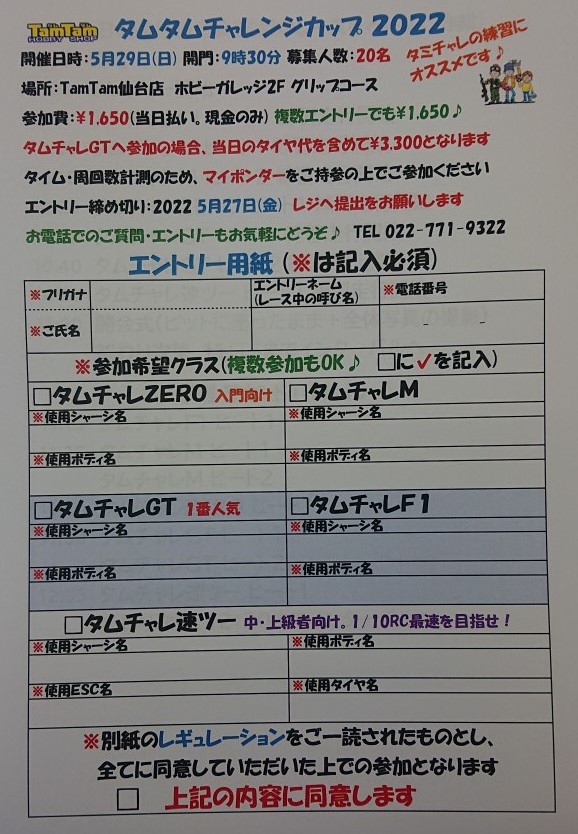 TamTam
HOBBY SHOP
タムタムチャレンジカップ 2022
開催日時:5月29日(日) 開門:9時30分 募集人数:20名
タミチャレの練習に
オススメです♪
場所:TamTam仙台店 ホビーガレッジ2F グリップコース
参加費:¥1.650(当日払い。現金のみ) 複数エントリーでも¥1.650♪
タムチャレGTへ参加の場合、当日のタイヤ代を含めて¥3.300となります
タイム・周回数計測のため、マイポンダーをご持参の上でご参加ください
エントリー締め切り:2022 5月27日(金) レジへ提出をお願いします
お電話でのご質問・エントリーもお気軽にどうぞ♪ TEL 022-771-9322
エントリー用紙(※は記入必須)
※フリガナ
エントリーネーム
(レース中の呼び名)
※電話番号
※ご氏名
- -
※参加希望クラス(複数参加もOK♪ □に✓を記入)
□タムチャレZERO 入門向け □タムチャレM
※使用シャーシ名 ※使用シャーシ名
※使用ボディ名 ※使用ボディ名
□タムチャレGT 1番人気 □タムチャレF1
※使用シャーシ名 ※使用シャーシ名
※使用ボディ名 ※使用ボディ名
□タムチャレ速ツー 中・上級者向け。1/10RC最速を目指せ!
※使用シャーシ名 ※使用ボディ名
※使用ESC名 ※使用タイヤ名
※別紙のレギュレーションをご一読されたものとし、
全てに同意していただいた上での参加となります
□ 上記の内容に同意します